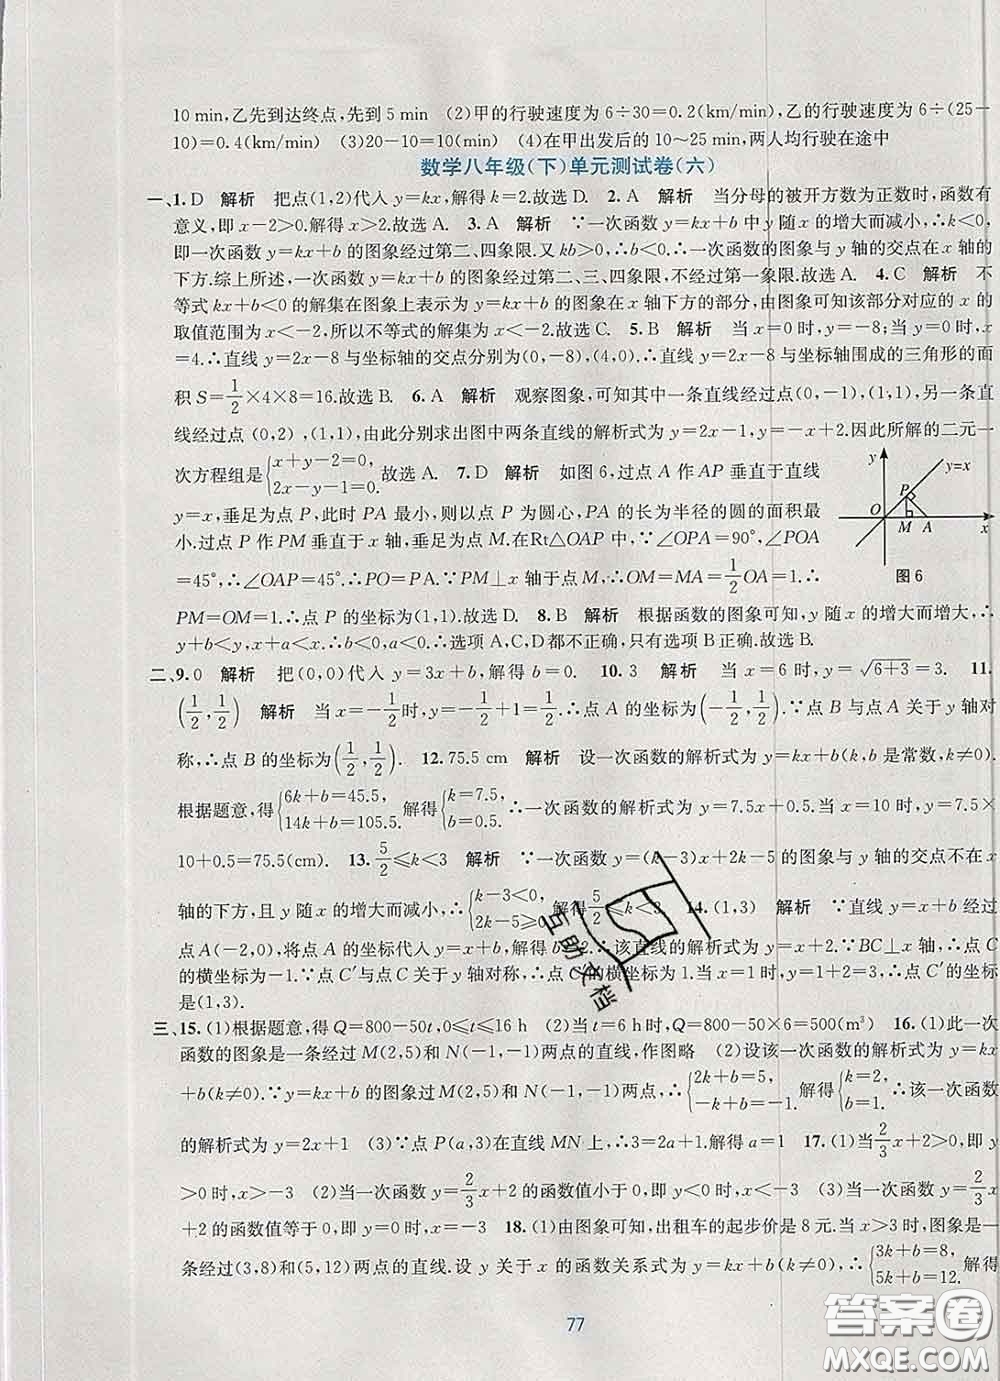 10 min,乙先到达终点,先到5 min (2)甲的行驶速度为6÷30=0.2(km/min),乙的行驶速度为6÷(25-
10)=0.4(km/min) (3)20-10=10(min) (4)在甲出发后的10~25 min,两人均行驶在途中
数学八年级(下)单元测试卷(六)
一、1. D 解析 把点(1,2)代入y=kx,解得k=2.故选D. 2. A 解析 当分母的被开方数为正数时,函数有
意义,即x-2>0.解得x>2.故选A. 3. A 解析 ∵一次函数y=kx+b中y随x的增大而减小,∴k<0,
即一次函数y=kx+b的图象经过第二、四象限.又kb>0,∴b<0.∴一次函数的图象与y轴的交点在x轴的
下方.综上所述,一次函数y=kx+b的图象经过第二、三、四象限,不经过第一象限.故选A. 4. C 解析 不
等式kx+b<0的解集在图象上表示为y=kx+b的图象在x轴下方的部分,由图象可知该部分对应的x的
取值范围为x<-2,所以不等式的解集为x<-2.故选C. 5. B 解析 当x=0时,y=-8;当y=0时,x
=4.∴直线y=2x-8与坐标轴的交点分别为(0,-8),(4,0).∴直线y=2x-8与坐标轴围成的三角形的面
积S=1/2×4×8=16.故选B. 6. A 解析 观察图象,可知其中一条直线经过点(0,-1),(1,1),另一条直
线经过点(0,2),(1,1),由此分别求出图中两条直线的解析式为y=2x-1,y=-x+2.因此所解的二元一
次方程组是{x+y-2=0, 2x-y-1=0.故选A. 7. D 解析 如图6,过点A作AP垂直于直线
y=x,垂足为点P,此时PA最小,则以点P为圆心,PA的长为半径的圆的面积最
小.过点P作PM垂直于x轴,垂足为点M.在Rt△OAP中,∵∠OPA=90°,∠POA
=45°,∴∠OAP=45°.∴PO=PA.∵PM⊥x轴于点M,∴OM=MA=1/2OA=1.∴
PM=OM=1.∴点P的坐标为(1,1).故选D. 8. B 解析 根据函数的图象可知,y随x的增大而增大,∴
y+b<y,x+a<x.∴b<0,a<0.∴选项A,C,D都不正确,只有选项B正确.故选B.
y
y=x
P
O
M
A
x
图6
二、9. 0 解析 把(0,0)代入y=3x+b,解得b=0. 10. 3 解析 当x=6时,y=√(6+3)=3. 11.
(1/2,1/2) 解析 当x=-1/2时,y=-1/2+1=1/2.∴点A的坐标为(-1/2,1/2).∵点B与点A关于y轴对
称,∴点B的坐标为(1/2,1/2). 12. 75.5 cm 解析 设一次函数的解析式为y=kx+b(k,b是常数,k≠0).
根据题意,得{6k+b=45, 14k+b=105.5. 解得{k=7.5, b=0.5. ∴一次函数的解析式为y=7.5x+0.5.当x=10时,y=7.5×
10+0.5=75.5(cm). 13. 5/2≤k<3 解析 ∵一次函数y=(k-3)x+2k-5的图象与y轴的交点不在x
轴的下方,且y随x的增大而减小,∴{k-3<0, 2k-5≥0. 解得5/2≤k<3. 14. (1,3) 解析 ∵直线y=x+b经过
点A(-2,0),将点A的坐标代入y=x+b,解得b=2.∴该直线的解析式为y=x+2.∵BC⊥x轴,∴点C
的横坐标为-1.∵点C′与点C关于y轴对称,∴点C′的横坐标为1.当x=1时,y=1+2=3.∴点C′的坐标
是(1,3).
三、15. (1)根据题意,得Q=800-50t,0≤t≤16 h (2)当t=6 h时,Q=800-50×6=500(m³) 16. (1)此一次
函数的图象是一条经过M(2,5)和N(-1,-1)两点的直线,作图略 (2)设该一次函数的解析式为y=kx
+b(k≠0).∵y=kx+b的图象过M(2,5)和N(-1,-1)两点,∴{2k+b=5, -k+b=-1. 解得{k=2, b=1. ∴该一次函数
的解析式为y=2x+1 (3)∵点P(a,3)在直线MN上,∴3=2a+1.解得a=1 17. (1)当2/3x+2>0,即y
>0时,x>-3 (2)当一次函数y=2/3x+2的函数值小于0时,即y<0时,x<-3 (3)当一次函数y=2/3x
+2的函数值等于0时,即y=0时,x=-3 18. (1)由图象可知,出租车的起步价是8元.当x>3时,图象是一
条经过(3,8)和(5,12)两点的直线.设y关于x的函数关系式为y=kx+b(k≠0).∴{3k+b=8, 5k+b=12. 解得
互助文档
77
答案圈
MXQE.COM